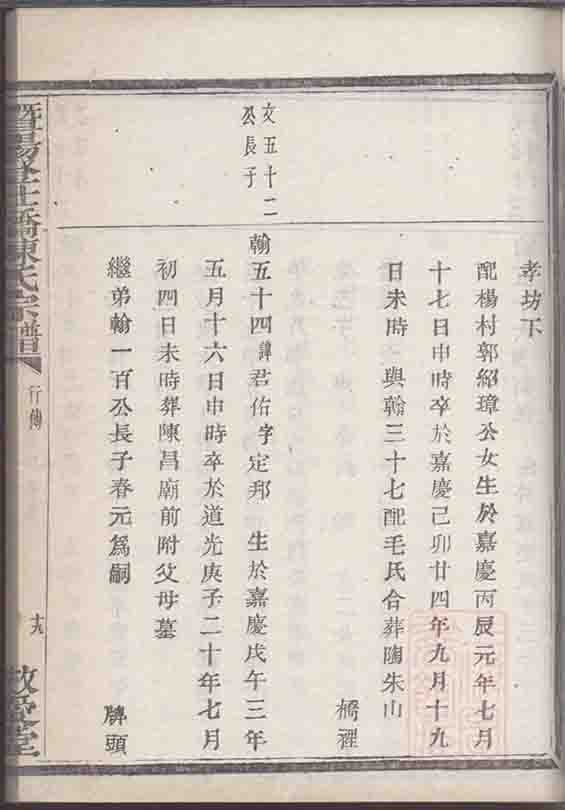 孝坊下
配楊村郭紹璋公女生於嘉慶丙辰元年七月
十七日申時卒於嘉慶己卯廿四年九月十九
日未時與翰三十七配毛氏合葬陶朱山
橋裡
文五十二
公長子
翰五十四諱君佑字定邦 生於嘉慶戊午三年
五月十六日申時卒於道光庚子二十年七月
初四日未時葬陳昌廟前附父母墓
繼弟翰一百公長子春元爲嗣
牌頭
陳氏宗譜
行傳
敬愛堂